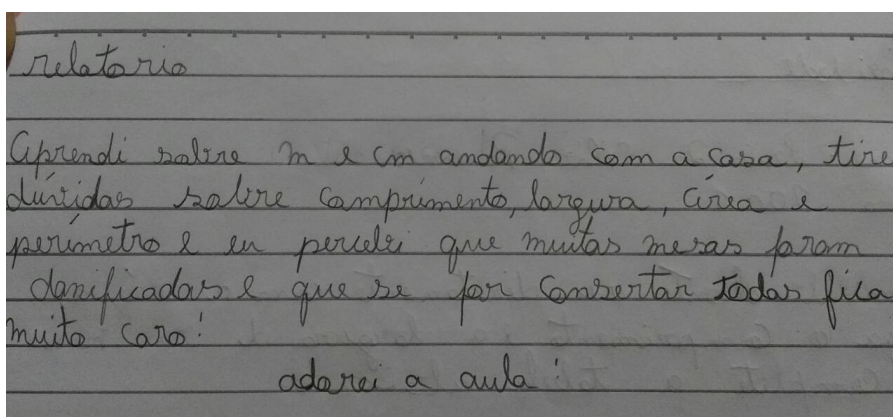 relatorio
Aprendi sobre m e cm andando com a casa, tire
dúvidas sobre comprimento, largura, área e
perímetro e eu percebi que muitas mesas foram
danificadas e que se for consertar todas fica
muito caro!
adorei a aula!